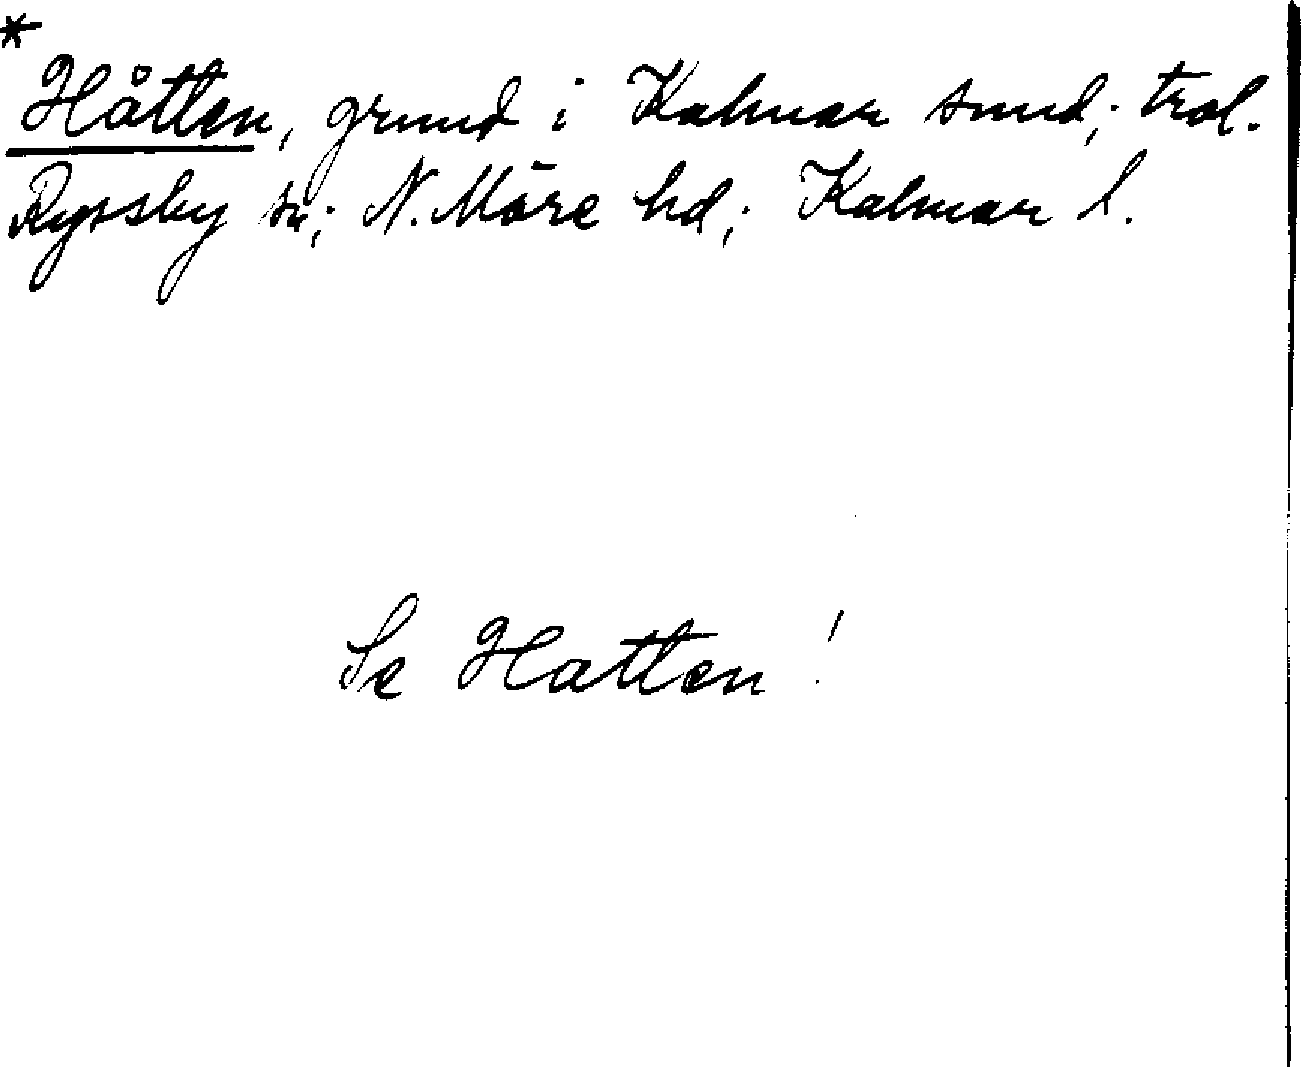 *
Håtten, grund i Kalmar sund; trol.
Ryssby sn; N. Möre hd; Kalmar l.
Se Hatten!